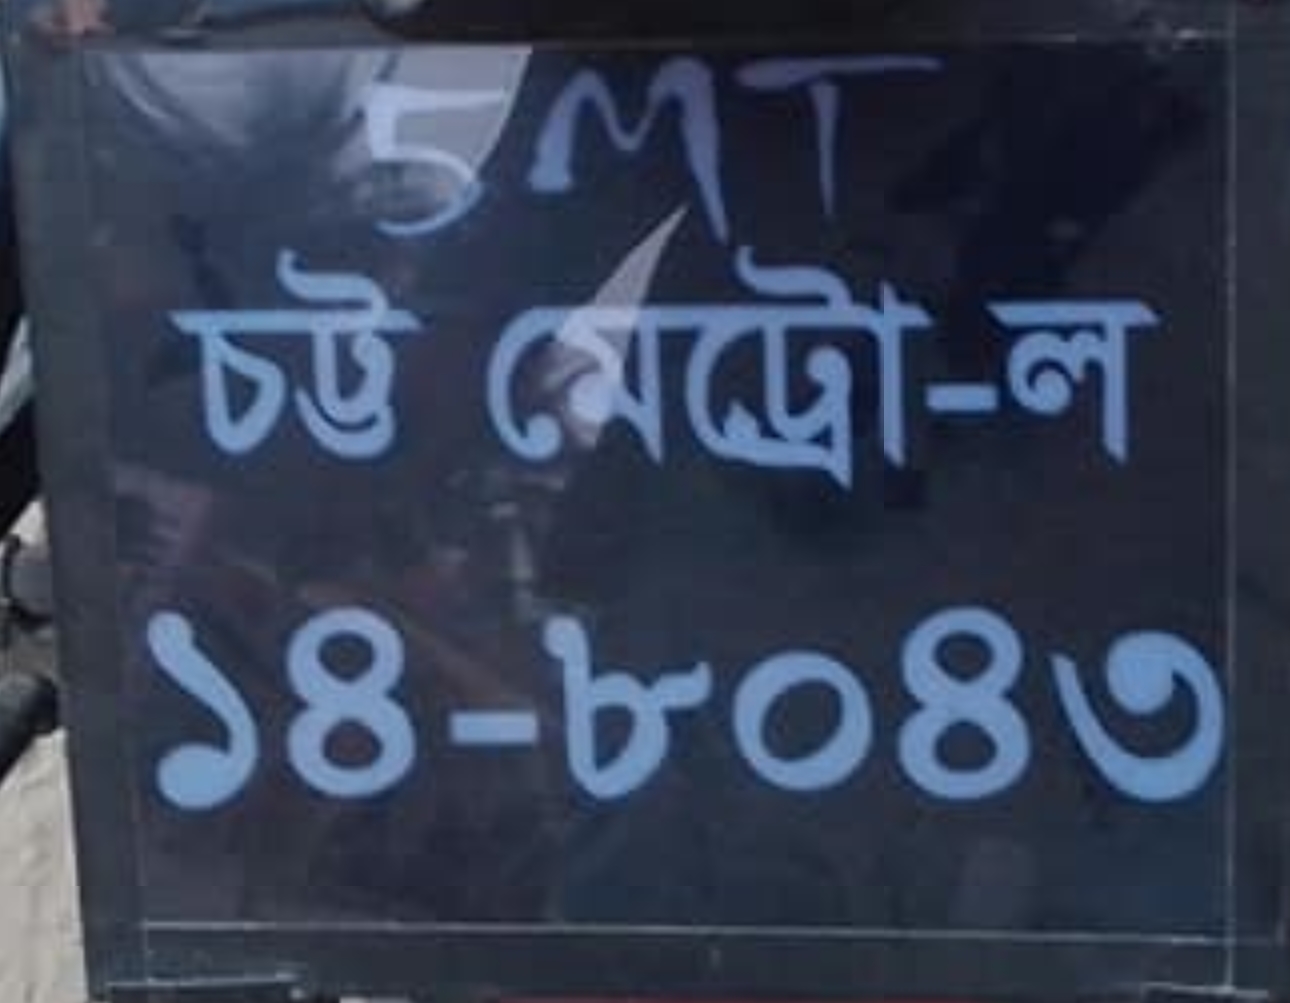 SMT
চট্ট মেট্রো-ল
১৪-৮০৪৩